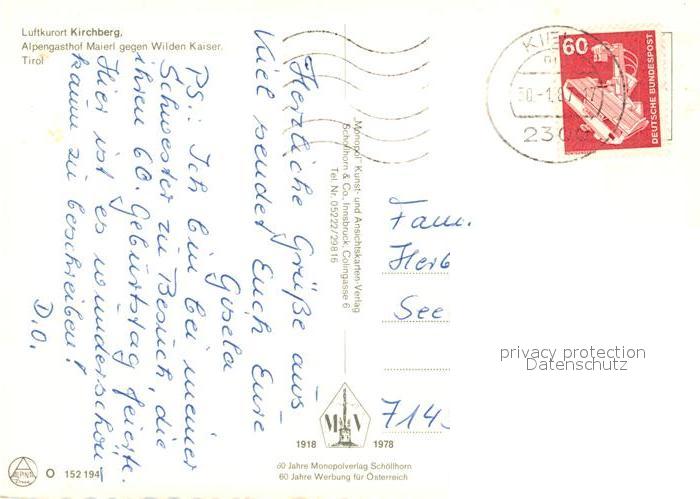 Luftkurort Kirchberg,
Alpengasthof Maierl gegen Wilden Kaiser.
Tirol
Herzliche Grüße aus
Kiel sendet Euch Eure
Gisela
PS: Ich bin bei meiner
Schwester zu Besuch, die
ihren 60. Geburtstag feierte.
Hier ist es wunderschön
kaum zu beschreiben!
D.O.
"Monopol" Kunst- und Ansichtskarten-Verlag
Schöllhorn & Co., Innsbruck, Colingasse 6
Tel. Nr. 05222/29816
60
DEUTSCHE BUNDESPOST
KIEL
230
Fam.
Herb
See
714
privacy protection
Datenschutz
M V
1918 1978
60 Jahre Monopolverlag Schöllhorn
60 Jahre Werbung für Österreich
ALPINA
O 152 194